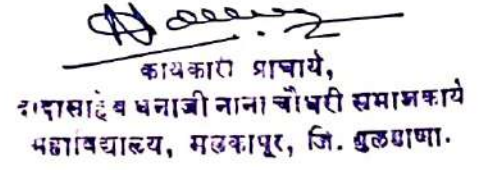 कार्यकारी प्राचार्य,
दादासाहेब धनाजी नाना चौधरी समाजकार्य
महाविद्यालय, मलकापूर, जि. बुलढाणा.